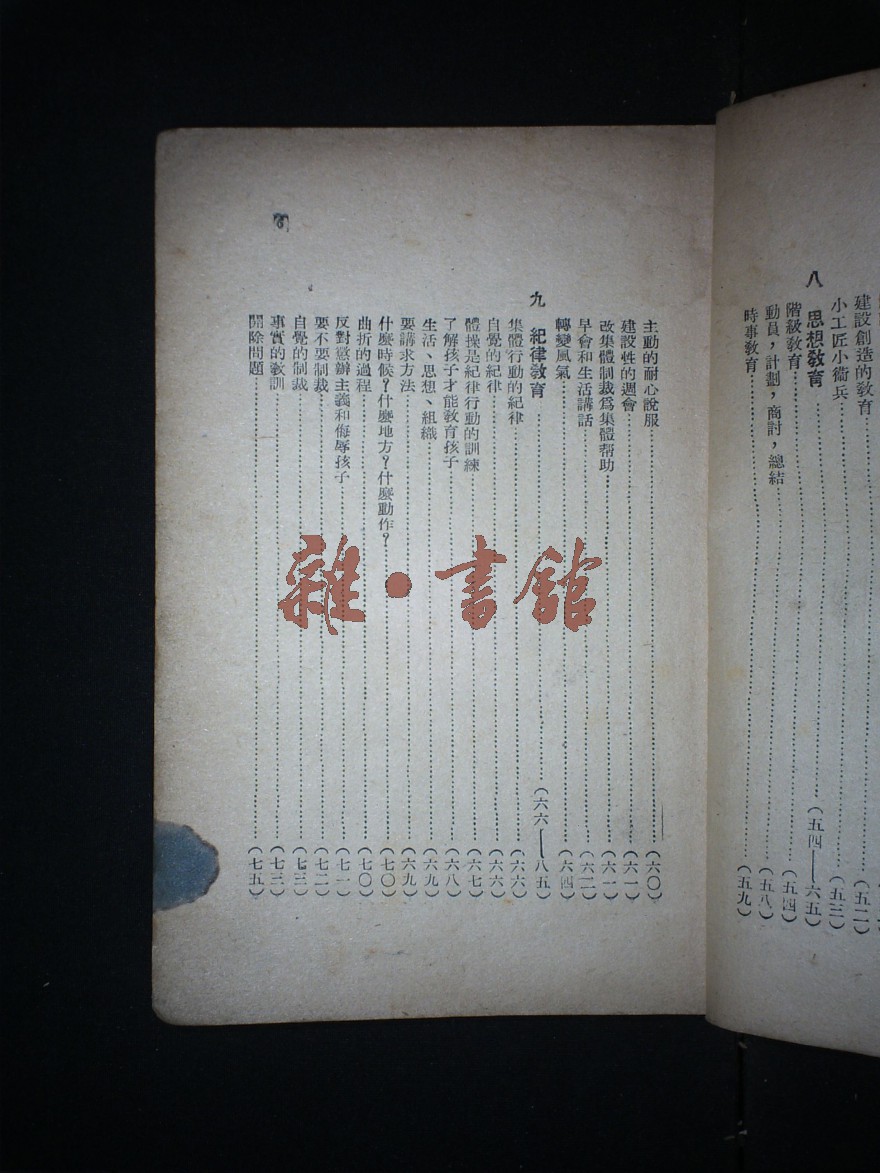 建設創造的教育……(五二)
小工匠小衞兵……(五三)
八 思想教育……(五四—六五)
階級教育……(五四)
動員，計劃，商討，總結……(五八)
時事教育……(五九)
主動的耐心說服……(六〇)
建設性的週會……(六一)
改集體制裁爲集體幫助……(六一)
早會和生活講話……(六二)
轉變風氣……(六四)
九 紀律教育……(六六—八五)
集體行動的紀律……(六六)
自覺的紀律……(六六)
體操是紀律行動的訓練……(六七)
了解孩子才能教育孩子……(六八)
生活、思想、組織……(六九)
要講求方法……(六九)
什麼時候？什麼地方？什麼動作？……(七〇)
曲折的過程……(七〇)
反對懲辦主義和侮辱孩子……(七一)
要不要制裁……(七二)
自覺的制裁……(七三)
事實的教訓……(七三)
開除問題……(七五)
6
雜·書館